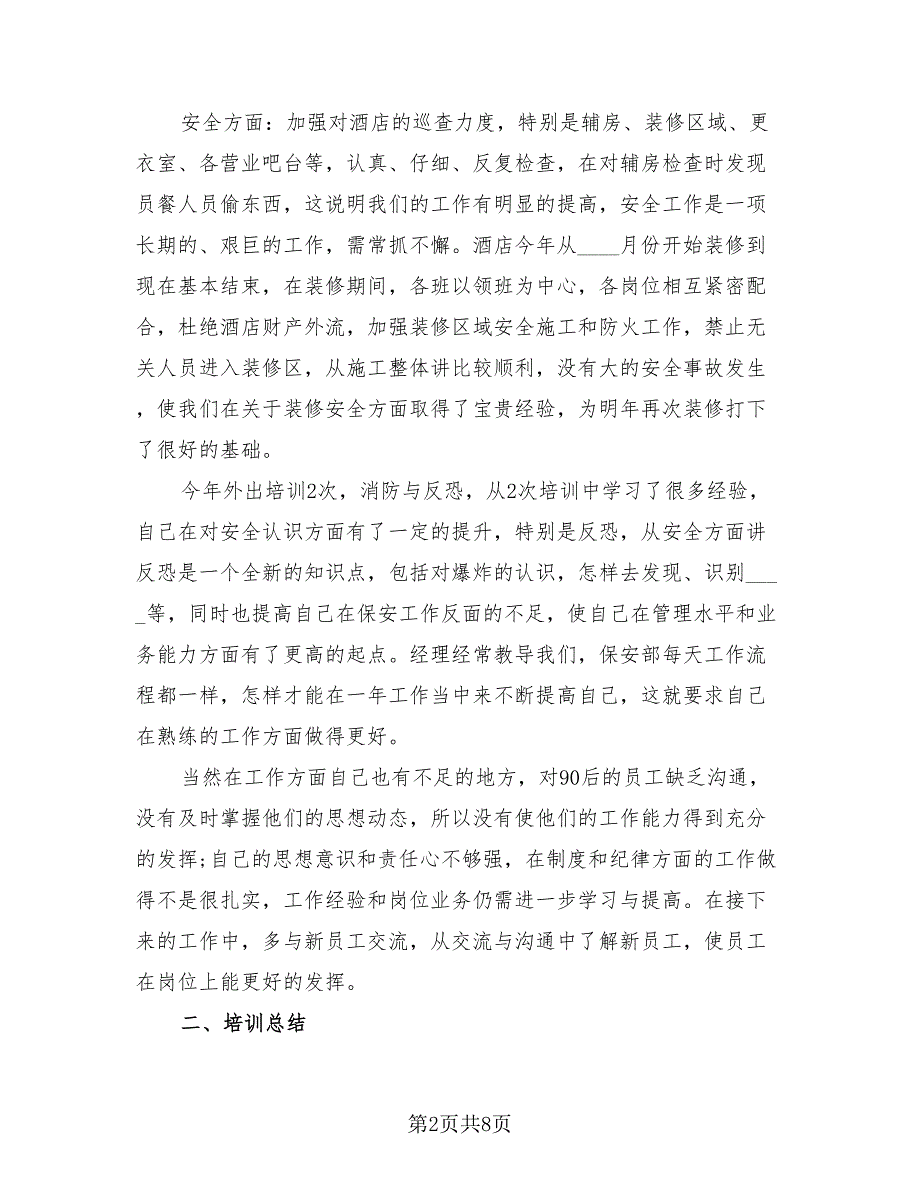 安全方面：加强对酒店的巡查力度，特别是辅房、装修区域、更
衣室、各营业吧台等，认真、仔细、反复检查，在对辅房检查时发现
员餐人员偷东西，这说明我们的工作有明显的提高，安全工作是一项
长期的、艰巨的工作，需常抓不懈。酒店今年从____月份开始装修到
现在基本结束，在装修期间，各班以领班为中心，各岗位相互紧密配
合，杜绝酒店财产外流，加强装修区域安全施工和防火工作，禁止无
关人员进入装修区，从施工整体讲比较顺利，没有大的安全事故发生
，使我们在关于装修安全方面取得了宝贵经验，为明年再次装修打下
了很好的基础。
今年外出培训2次，消防与反恐，从2次培训中学习了很多经验，
自己在对安全认识方面有了一定的提升，特别是反恐，从安全方面讲
反恐是一个全新的知识点，包括对爆炸的认识，怎样去发现、识别___
_等，同时也提高自己在保安工作反面的不足，使自己在管理水平和业
务能力方面有了更高的起点。经理经常教导我们，保安部每天工作流
程都一样，怎样才能在一年工作当中来不断提高自己，这就要求自己
在熟练的工作方面做得更好。
当然在工作方面自己也有不足的地方，对90后的员工缺乏沟通，
没有及时掌握他们的思想动态，所以没有使他们的工作能力得到充分
的发挥;自己的思想意识和责任心不够强，在制度和纪律方面的工作做
得不是很扎实，工作经验和岗位业务仍需进一步学习与提高。在接下
来的工作中，多与新员工交流，从交流与沟通中了解新员工，使员工
在岗位上能更好的发挥。
二、培训总结
第2页共8页